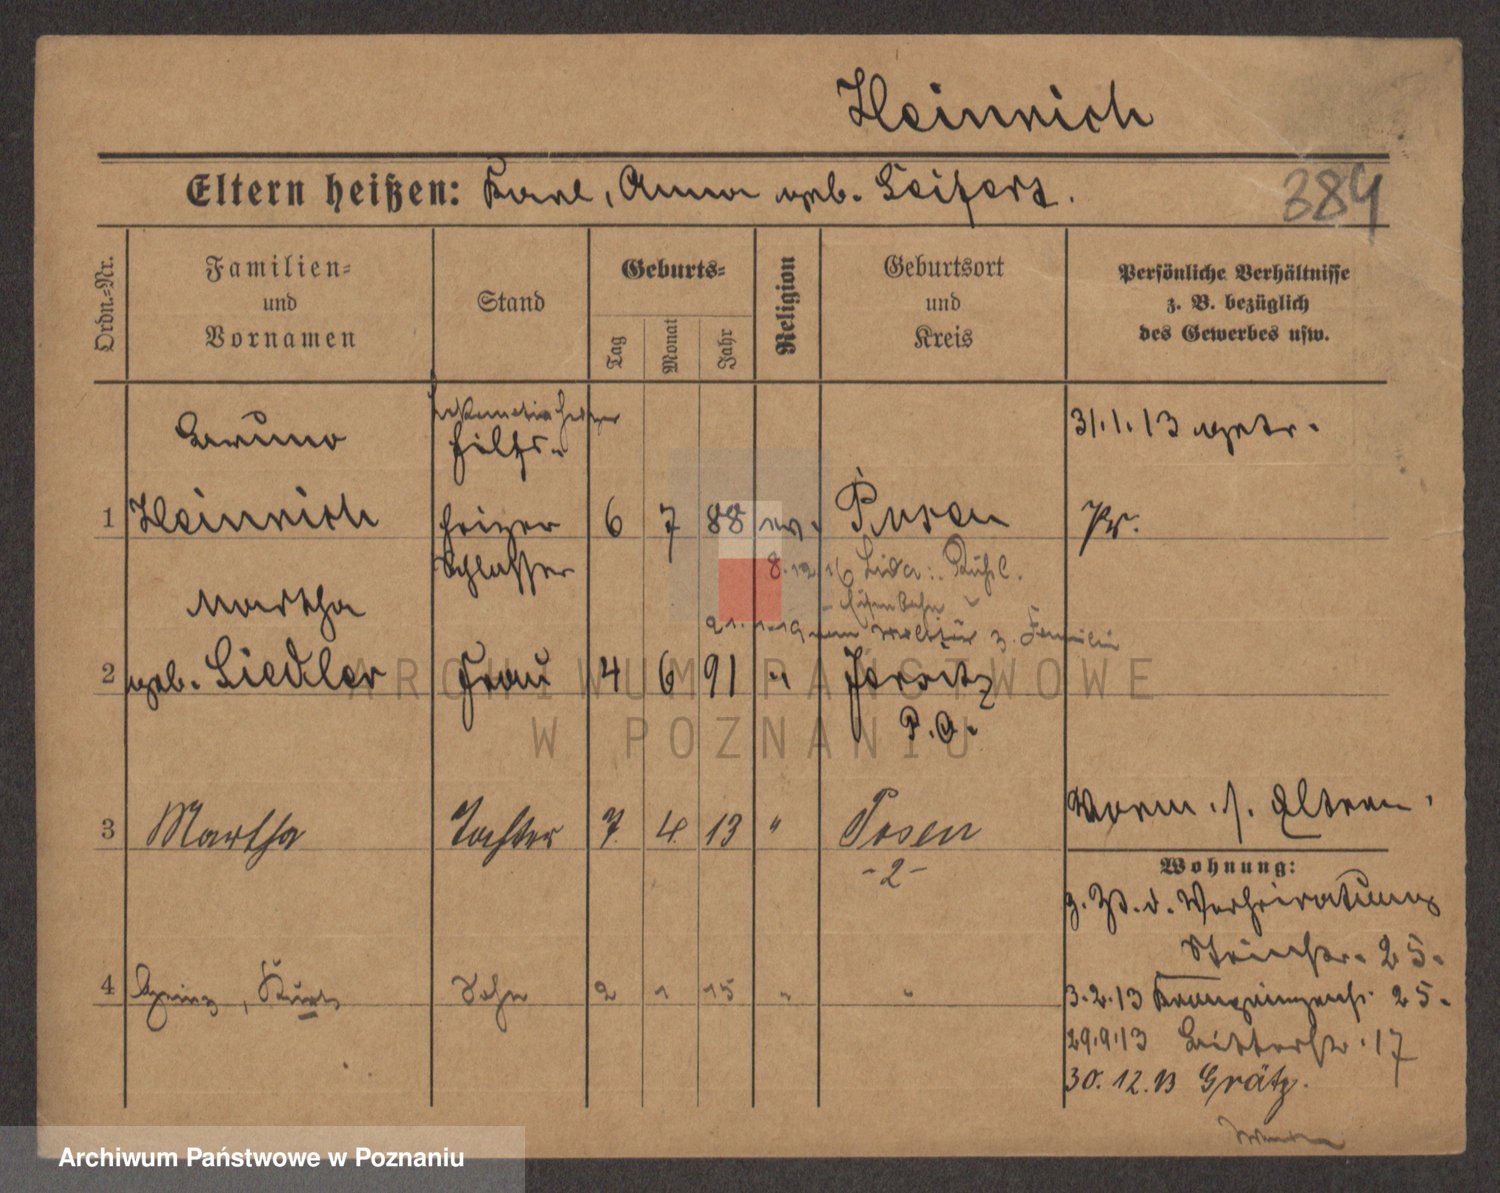 Heinrich
Eltern heißen: Karl, Anna geb. Seifert.
384
Ordn.-Nr.
Familien-
und
Vornamen
Stand
Geburts-
Tag
Monat
Jahr
Religion
Geburtsort
und
Kreis
Persönliche Verhältnisse
z. B. bezüglich
des Gewerbes usw.
Bruno
Hilfs-
31.1.13 getr.
1 Heinrich heizer 6 7 88 ev. Posen Pr.
Schlosser
8.12.16
Martha
21.1.19 vom Militär z. Familie
2 geb. Siedler Frau 4 6 91 " Jersitz
P. O.
3 Martha Tochter 7 4 13 " Posen
-2-
Vorm. s. Eltern
Wohnung:
z. Zt. d. Verheiratung
25.
4 Heinz, Kurt Sohn 2 1 15 " "
3.2.13 Kronprinzenstr. 25.
29.9.13 17
30.12.13 Grätz.
ARCHIWUM PAŃSTWOWE
W POZNANIU
Archiwum Państwowe w Poznaniu